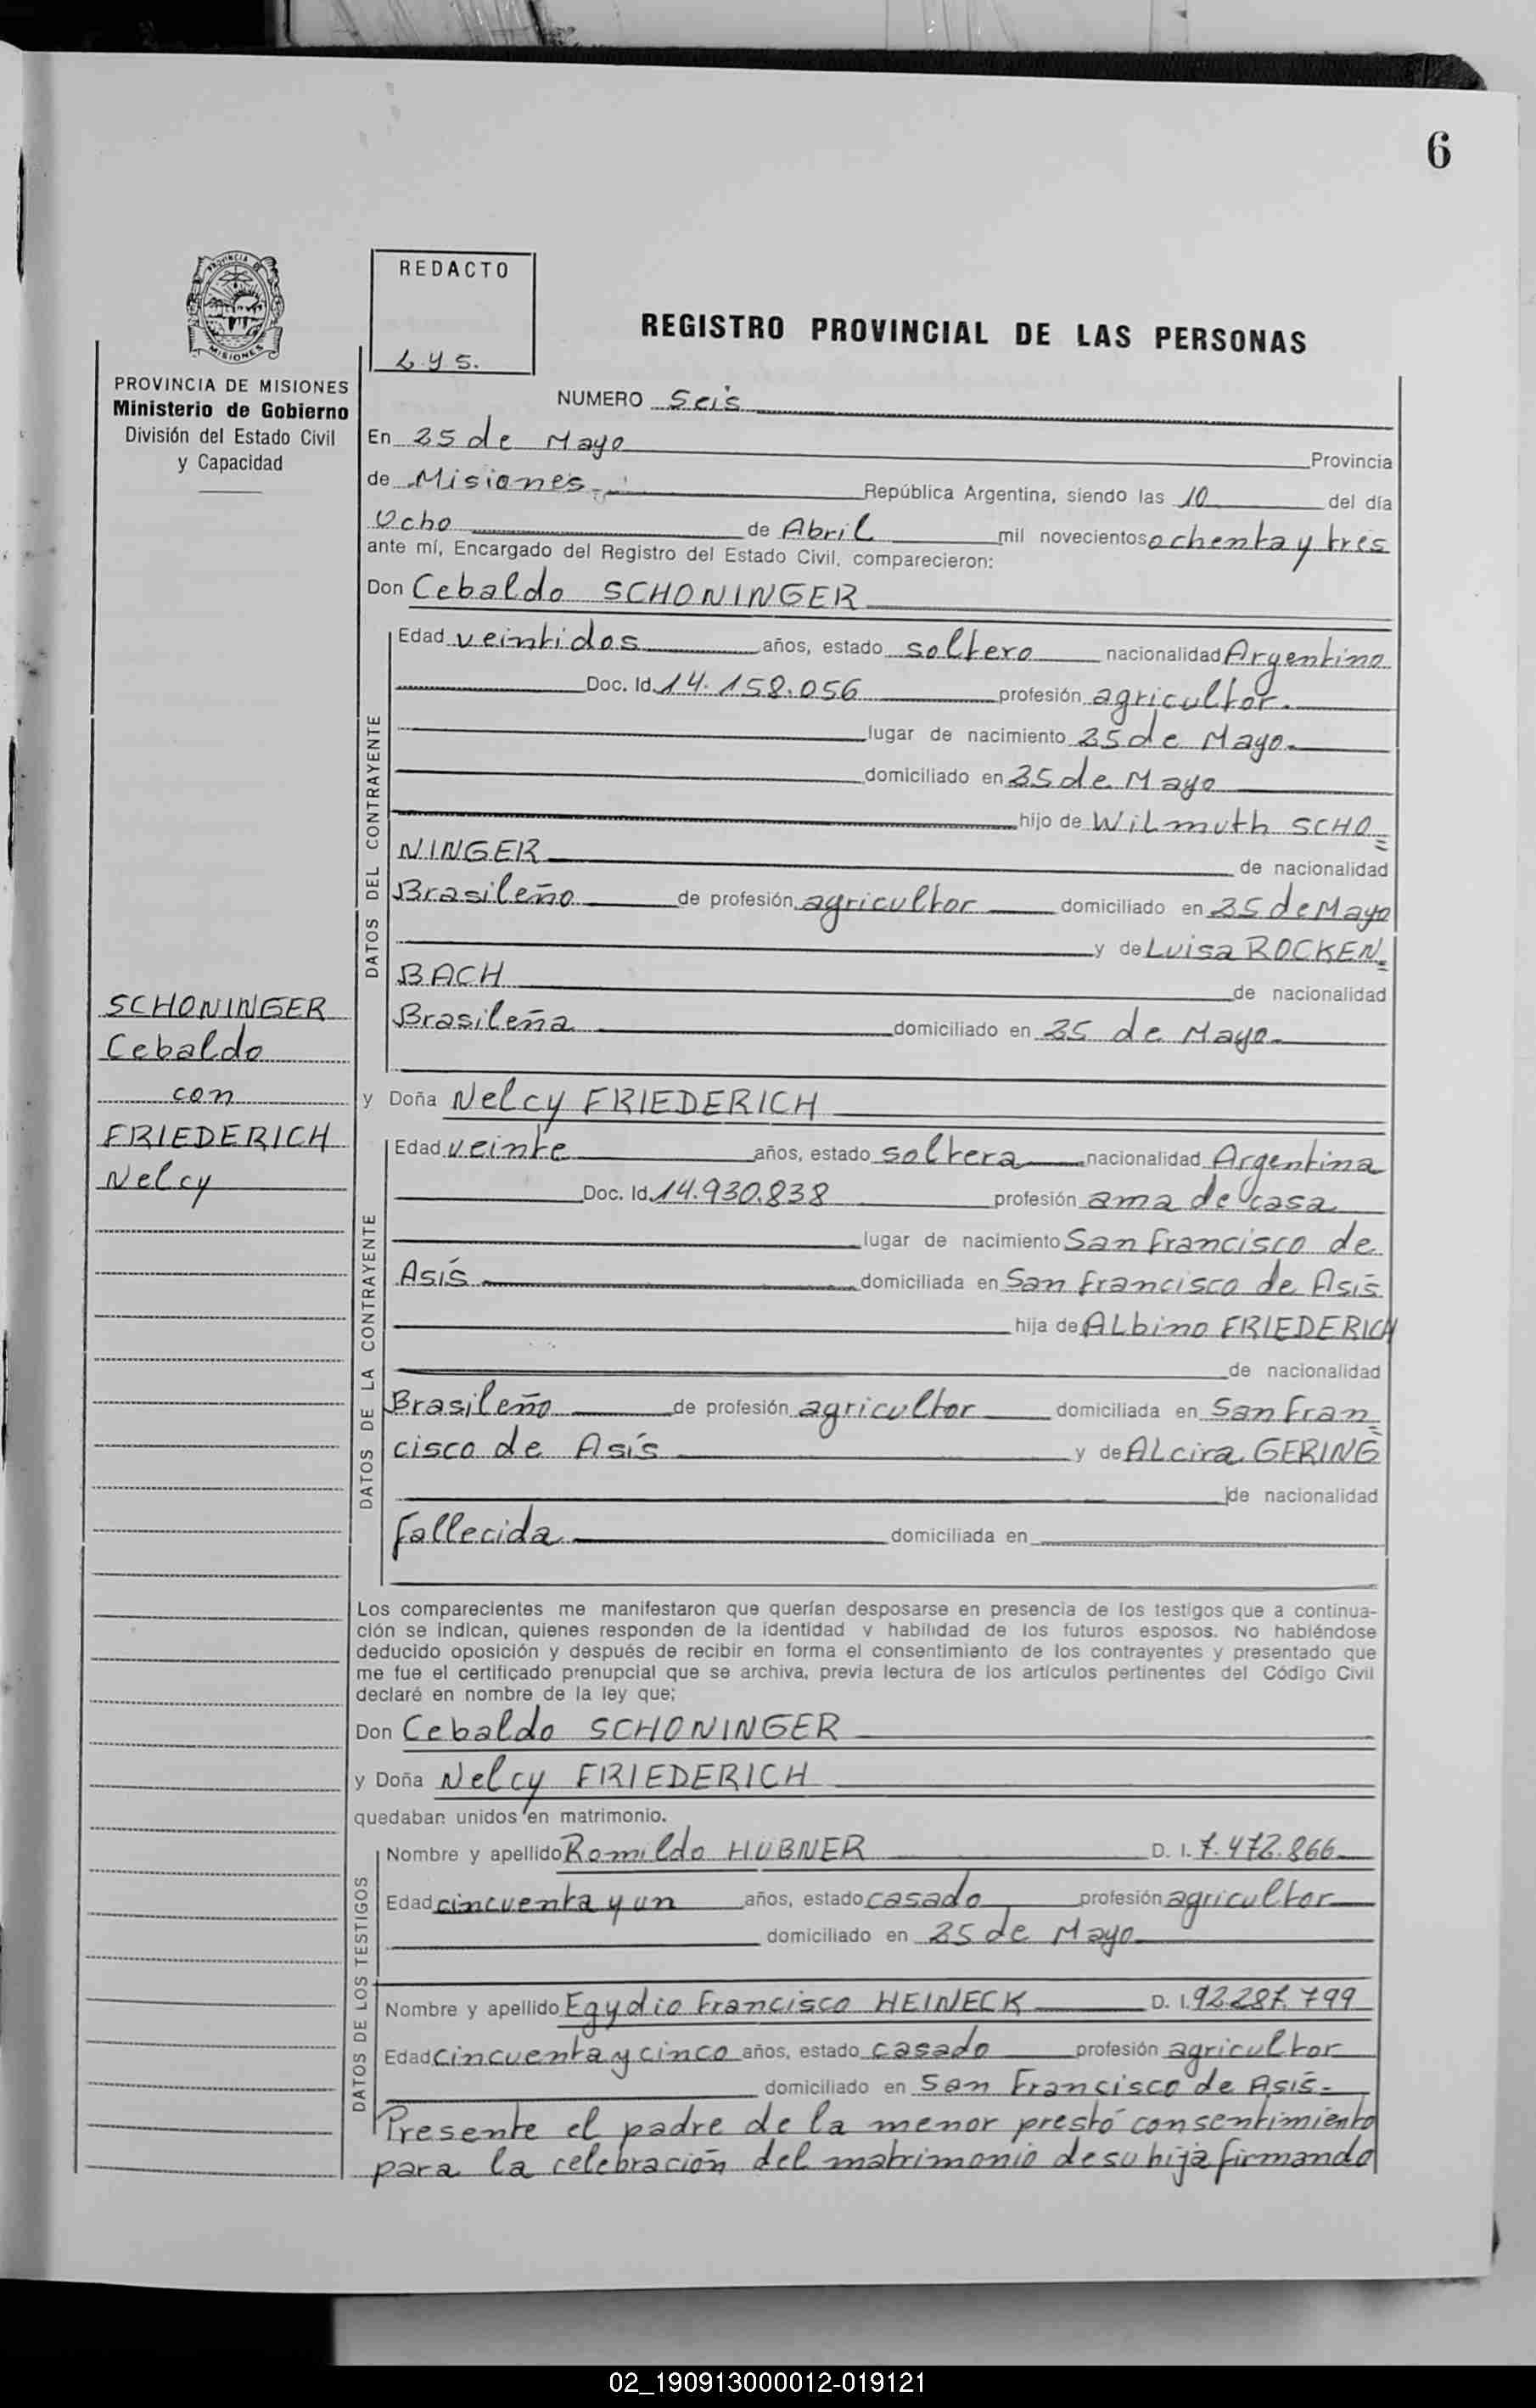 6
PROVINCIA DE
MISIONES
REDACTO
L.y S.
REGISTRO PROVINCIAL DE LAS PERSONAS
PROVINCIA DE MISIONES
Ministerio de Gobierno
División del Estado Civil
y Capacidad
NUMERO Seis
En 25 de Mayo Provincia
de Misiones República Argentina, siendo las 10 del día
Ocho de Abril mil novecientos ochenta y tres
ante mí, Encargado del Registro del Estado Civil, comparecieron:
Don Cebaldo SCHONINGER
DATOS DEL CONTRAYENTE
Edad veintidos años, estado soltero nacionalidad Argentino
Doc. Id. 14.158.056 profesión agricultor.
lugar de nacimiento 25 de Mayo.
domiciliado en 25 de Mayo
hijo de Wilmuth SCHO=
NINGER de nacionalidad
Brasileño de profesión agricultor domiciliado en 25 de Mayo
y de Luisa ROCKEN=
BACH de nacionalidad
Brasileña domiciliado en 25 de Mayo
SCHONINGER
Cebaldo
con
FRIEDERICH
Nelcy
y Doña Nelcy FRIEDERICH
DATOS DE LA CONTRAYENTE
Edad veinte años, estado soltera nacionalidad Argentina
Doc. Id. 14.930.838 profesión ama de casa
lugar de nacimiento San Francisco de
Asís domiciliada en San Francisco de Asís
hija de Albino FRIEDERICH
de nacionalidad
Brasileño de profesión agricultor domiciliada en San Fran=
cisco de Asís y de Alcira GERING
de nacionalidad
Fallecida domiciliada en
Los comparecientes me manifestaron que querían desposarse en presencia de los testigos que a continua-
ción se indican, quienes responden de la identidad y habilidad de los futuros esposos. No habiéndose
deducido oposición y después de recibir en forma el consentimiento de los contrayentes y presentado que
me fue el certificado prenupcial que se archiva, previa lectura de los artículos pertinentes del Código Civil
declaré en nombre de la ley que;
Don Cebaldo SCHONINGER
y Doña Nelcy FRIEDERICH
quedaban unidos en matrimonio.
DATOS DE LOS TESTIGOS
Nombre y apellido Romildo HÜBNER D. I. 7.472.866
Edad cincuenta y un años, estado casado profesión agricultor
domiciliado en 25 de Mayo
Nombre y apellido Egydio Francisco HEINECK D. I. 92.287.799
Edad cincuenta y cinco años, estado casado profesión agricultor
domiciliado en San Francisco de Asís.
Presente el padre de la menor prestó consentimiento
para la celebración del matrimonio de su hija firmando
02_190913000012-019121